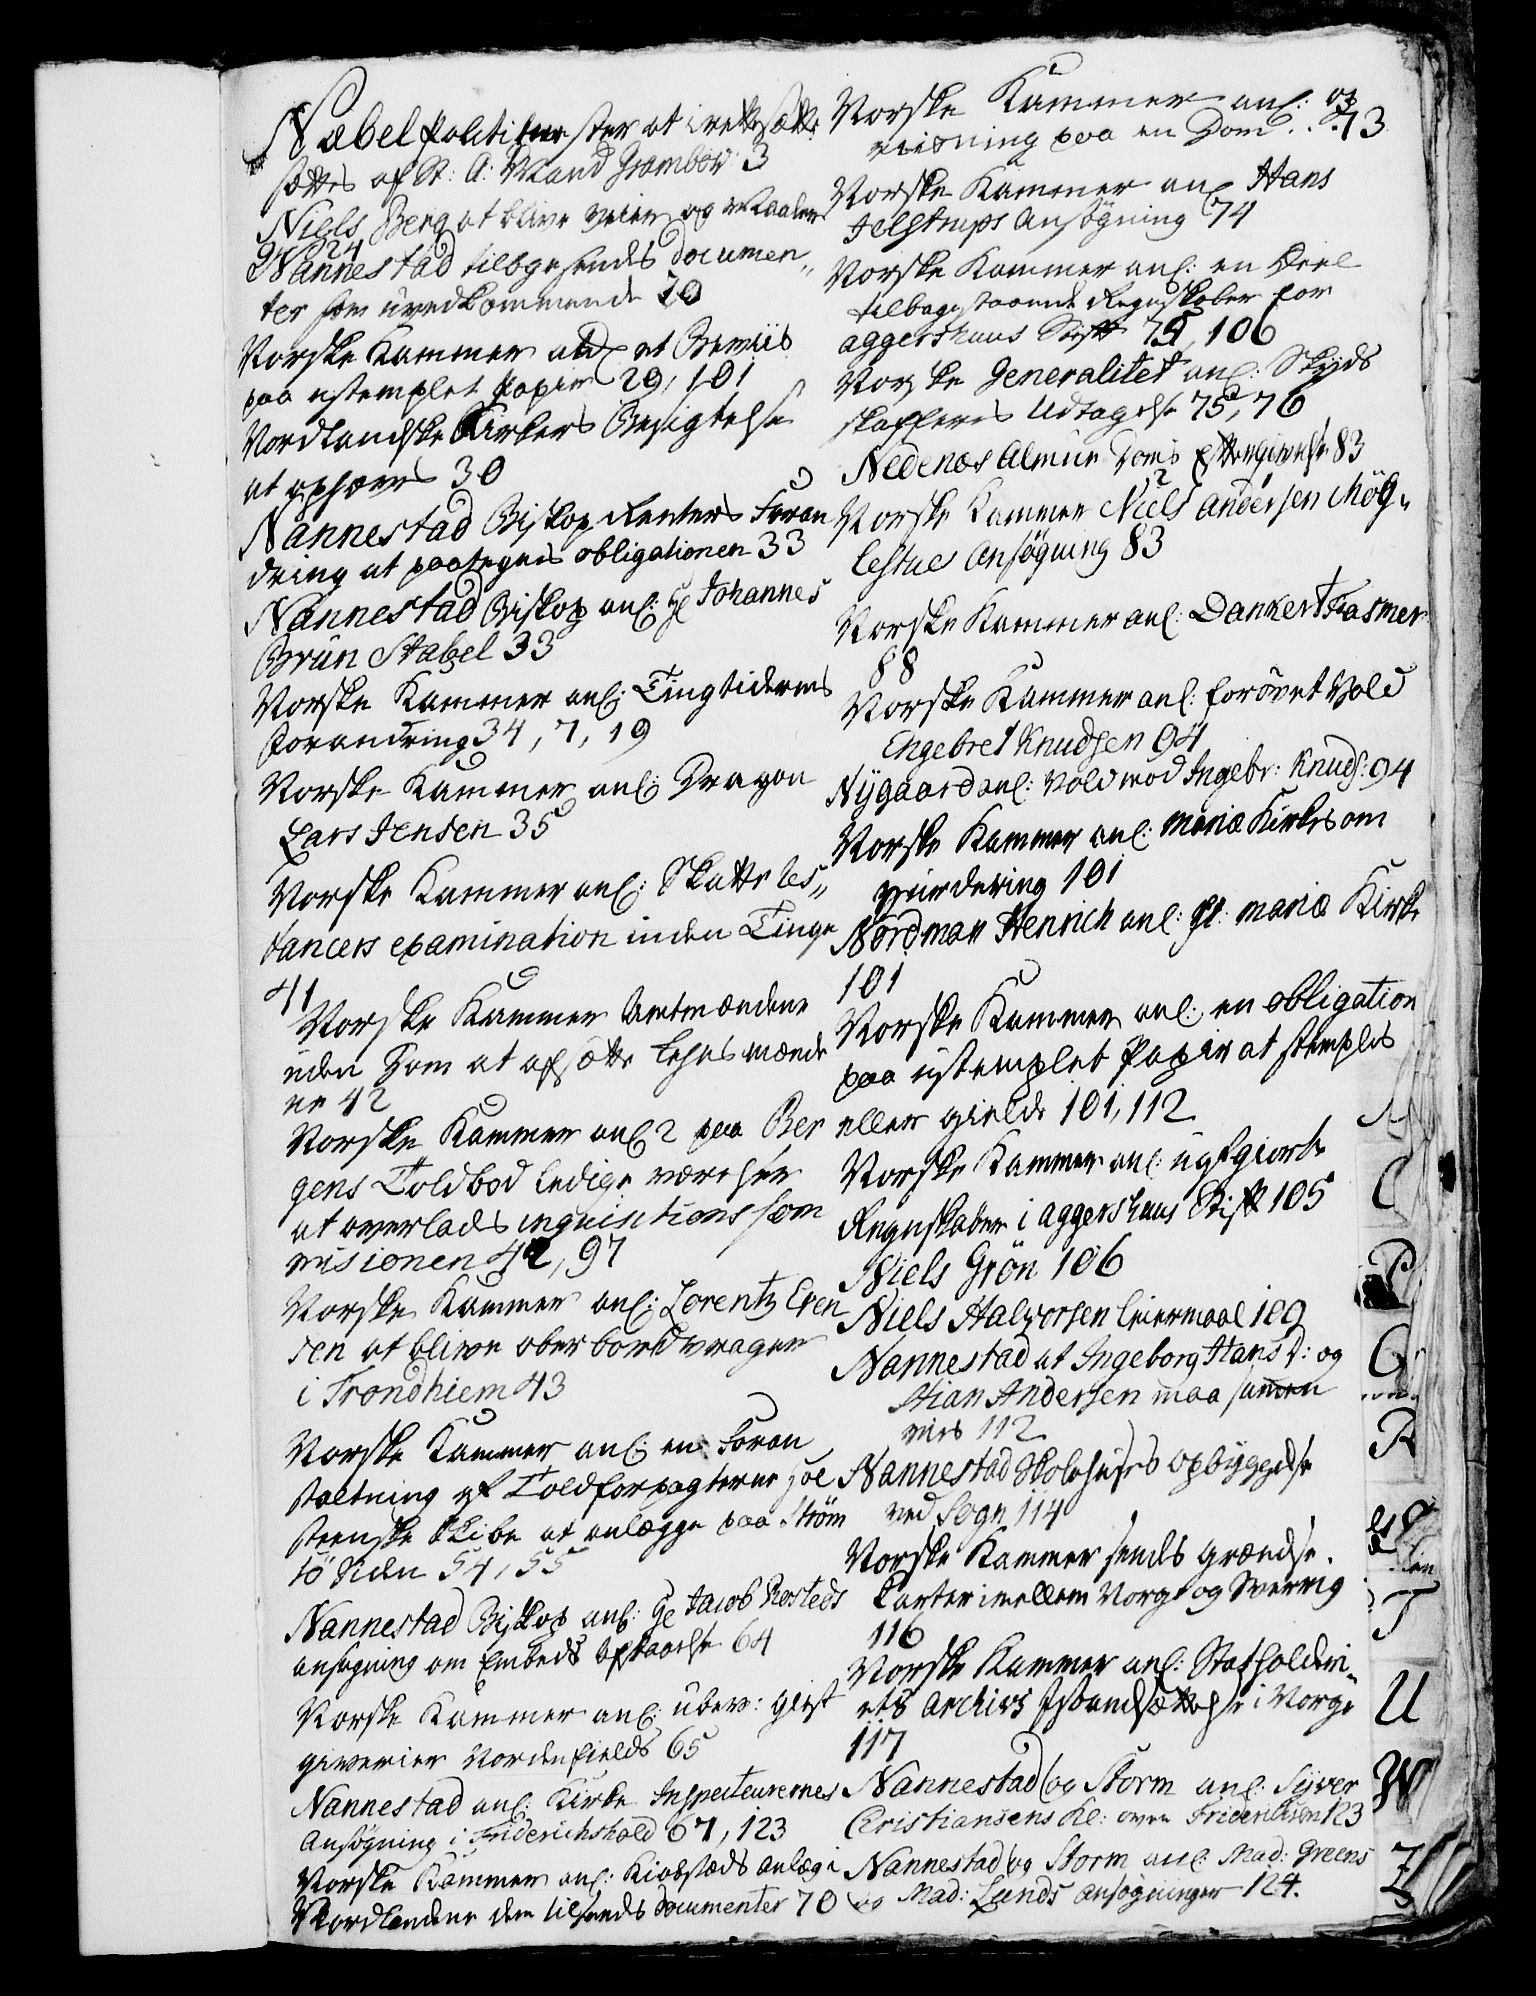 Nabel Politimester at irettesætte
sættes af St: A: Mand Grambow 3
Niels Berg at blive Veier og Maaler
24
Nannestad tilbagesends Documen„
ter som uvedkommende 29
Norske Kammer at et Beviis
paa ustemplet Papir 29, 101
Nordlandske Kirkers Besigtelse
at ophæves 30
Nannestad Biskop Renters Foran
dring at paategnes obligationen 33
Nannestad Biskop anl: Hr Johannes
Brun Stabel 33
Norske Kammer anl: Tingtidernes
Forandring 34, 7, 19
Norske Kammer anl: Dragon
Lars Jensen 35
Norske Kammer anl: Skatte les„
tancers examination inden Tinge
41
Norske Kammer Amtmændene
uden Dom at afsætte Lehnsmænde
ne 42
Norske Kammer anl: 2 paa Ber
gens Toldbod ledige værelser
at overlades inquisitions Com
misionen 42, 97
Norske Kammer anl: Lorentz Even
sen at blive ober bordvrager
i Trondhiem 43
Norske Kammer anl: en Foran
staltning af Toldforpagterne Hol
steenske Skibe at anlægge paa Ström
sö Siden 54, 55
Nannestad Biskop anl: Hr Jacob Rosteds
ansøgning om Embeds Opstaaelse 64
Norske Kammer anl: ubev: giest
giverier Nordenfields 65
Nannestad anl: Kirke Inspecteurernes
Ansøgning i Friderichshald 67, 123
Norske Kammer anl: Kiøbstæds anlæg i
Nordlandene dem tilsends Documenter 70
Norske Kammer anl: op
viisning paa en Dom . . 73
Norske Kammer anl Hans
Jelstrups Ansøgning 74
Norske Kammer anl: en Deel
tilbagestaaende Regnskaber for
aggershuus Stift 75, 106
Norske Generalitet anl: Skyds
skafferes Udtagelse 75, 76
Nedenæs Almue Doms Eftergivelse 83
Norske Kammer Niels Andersen Møg„
lestues Ansøgning 83
Norske Kammer anl: Dankert Fasmer
88
Norske Kammer anl: forövet Vold
Engebret Knudsen 94
Nygaard anl: Vold mod Ingebr: Knuds: 94
Norske Kammer anl: Mariæ Kirkes om
vurdering 101
Nordman Henrich anl: Gl: Mariæ Kirke
101
Norske Kammer anl: en obligation
paa ustemplet Papir at stemples
eller gields 101, 112
Norske Kammer anl: uafgiorte
Regnskaber i Aggershuus Stift 105
Niels Grön 106
Niels Halvorsen leiermaal 109
Nannestad at Ingeborg Hans D: og
Stian Andersen maa sammen
vies 112
Nannestad Skolehuses Opbyggelse
ved Sogn 114
Norske Kammer sends Grændse
Carter imellem Norge og Sverrig
116
Norske Kammer anl: Statholderi„
ets Archivs Istandsættelse i Norge
117
Nannestad og Storm anl: Syver
Christiansens Kl: over Fridericksen 123
Nannestad og Storm anl: Mad: Greens
og Mad: Lunds Ansøgninger 124.
C
P
R
T
U
W
Z